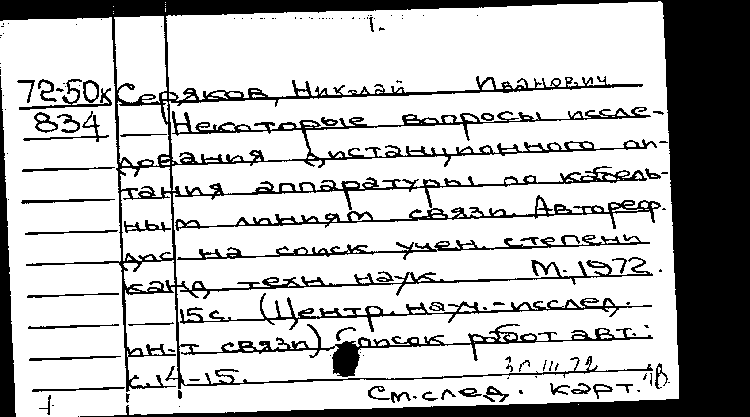 1.
72-50к Серяков, Николай Иванович
834 Некоторые вопросы иссле-
дования дистанционного пи-
тания аппаратуры по кабель-
ным линиям связи. Автореф.
дис. на соиск. учен. степени
канд. техн. наук. М., 1972.
15 с. (Центр. науч.-исслед.
ин-т связи) Список работ авт.:
с. 14-15.
30.III.72
См. след. карт.